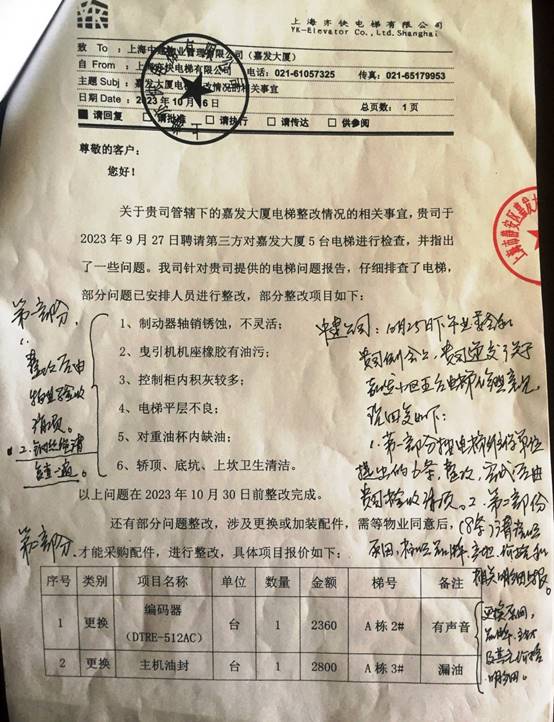 上海亦快电梯有限公司
YK-Elevator Co., Ltd.Shanghai
致 To ：上海中 物业管理有限公司（嘉发大厦）
自 From ：上海亦快电梯有限公司 电话：021-61057325 传真：021-65179953
主题 Subj：嘉发大厦电梯整改情况的相关事宜
日期 Date：2023 年 10 月 16 日 总页数：1 页
■ 请回复 □ 请批准 □ 请执行 □ 请传达 □ 供参阅
尊敬的客户：
您好！
关于贵司管辖下的嘉发大厦电梯整改情况的相关事宜，贵司于
2023 年 9 月 27 日聘请第三方对嘉发大厦 5 台电梯进行检查，并指出
了一些问题。我司针对贵司提供的电梯问题报告，仔细排查了电梯，
部分问题已安排人员进行整改，部分整改项目如下：
第一部份，
1、
整改后由
物业验收
清项。
2、钢丝绳请
复查一遍。
1、制动器轴销锈蚀，不灵活；
2、曳引机机座橡胶有油污；
3、控制柜内积灰较多；
4、电梯平层不良；
5、对重油杯内缺油；
6、轿顶、底坑、上坎卫生清洁。
以上问题在 2023 年 10 月 30 日前整改完成。
公司：10月25日下午业委会和
贵司例会上，贵司递交了关于
现回复如下：
1、第一部分按电梯维保单位
提出的6条，整改，完成后由
贵司验收清项。2、第二部份
（8条）请
原因，品牌、产地、价格和
相关明细上报。
还有部分问题整改，涉及更换或加装配件，需等物业同意后，
第二部份
才能采购配件，进行整改，具体项目报价如下：
序号 类别 项目名称 单位 数量 金额 梯号 备注
1 更换 编码器 台 1 2360 A 栋 2# 有声音
（DTRE-512AC）
2 更换 主机油封 台 1 2800 A 栋 3# 漏油
更换原因，
品牌、产地
及其价格
明细。